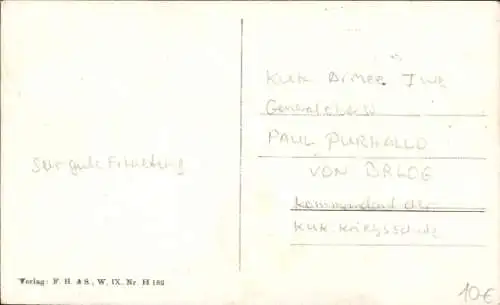 Sehr gute Erhaltung
K.u.K. ARMEE
Generaloberst
PAUL PUHALLO
VON BRLOG
Kommandant der
K.u.K. Kriegsschule
Verlag: F. H. & S., W. IX. Nr. H 182
10.-€